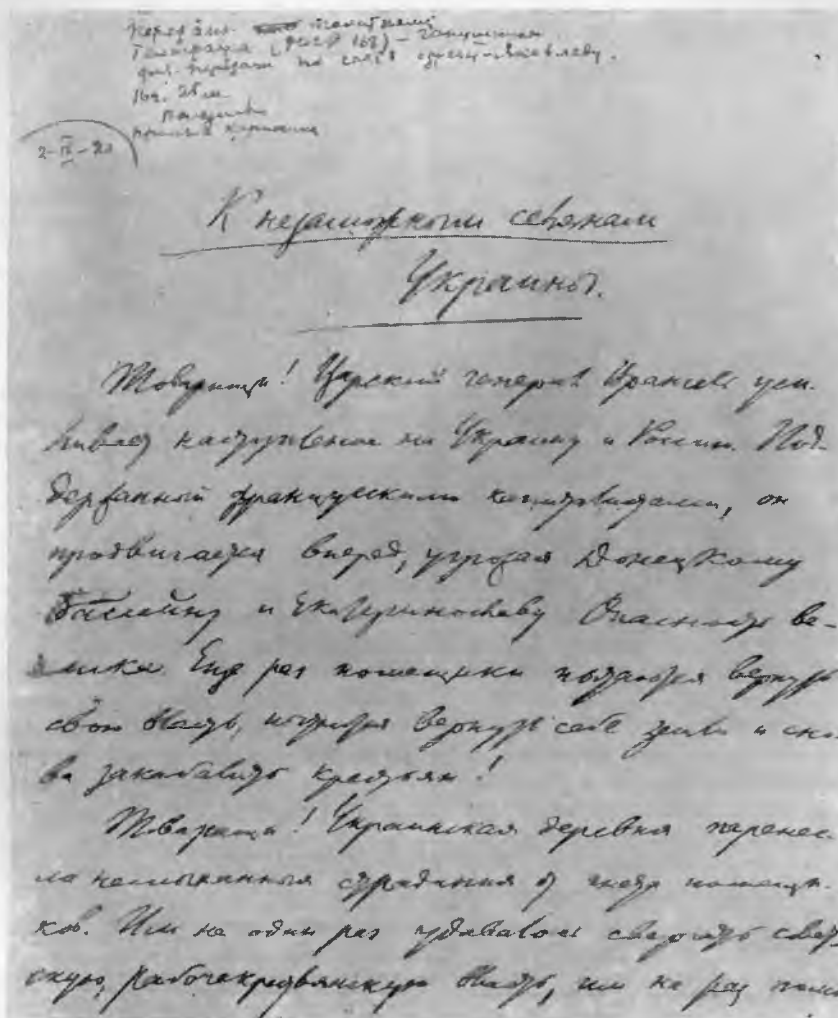 для передачи по
16 ч. 25 м.
К незаможным селянам
Украины.
Товарищи! Царский генерал Врангель уси-
ливает наступление на Украину и Россию. Под-
держанный французскими капиталистами, он
продвигается вперед, угрожая Донецкому
бассейну и Екатеринославу Опасность ве-
лика. Еще раз помещики пытаются вернуть
свою власть, пытаются вернуть себе земли и сно
ва закабалить крестьян!
Товарищи! Украинская деревня перенес-
ла неслыханныя страдания от гнета помещи-
ков. Им не один раз удавалось свергать совет
скую, рабочекрестьянскую власть, им не раз